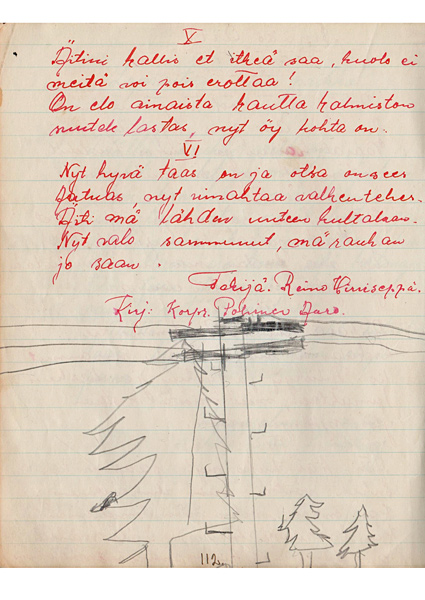 V
Äitini kallis et itkeä saa, kuolo ei
meitä voi pois erottaa!
On elo ainaista kautta kalmiston
muutele lastas, nyt öy kohta on.
VI
Nyt hyvä taas on ja otsa on sees
satuas, nyt
Äiti mä lähden uuteen kultalaan.
Nyt valo sammunut, mä rauhan
jo saan.
Tekijä. Reino Hirviseppä.
Kirj: Korpr. Pohinen Aaro.
112